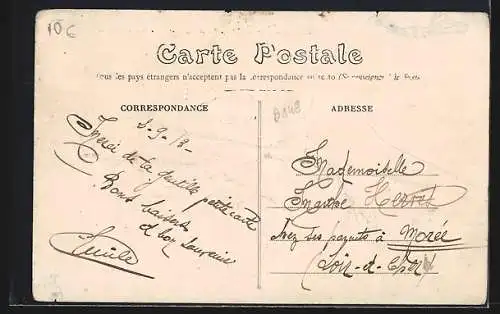 10€
Carte Postale
Tous les pays étrangers n'acceptent pas la correspondance au recto (Se renseigner à la Poste)
CORRESPONDANCE
ADRESSE
8-9-13-
Merci de ta gentille petite carte
Bons baisers
& bon souvenir
Mademoiselle
Marthe Hervet
chez ses parents à Morée
(Loir-et-Cher)